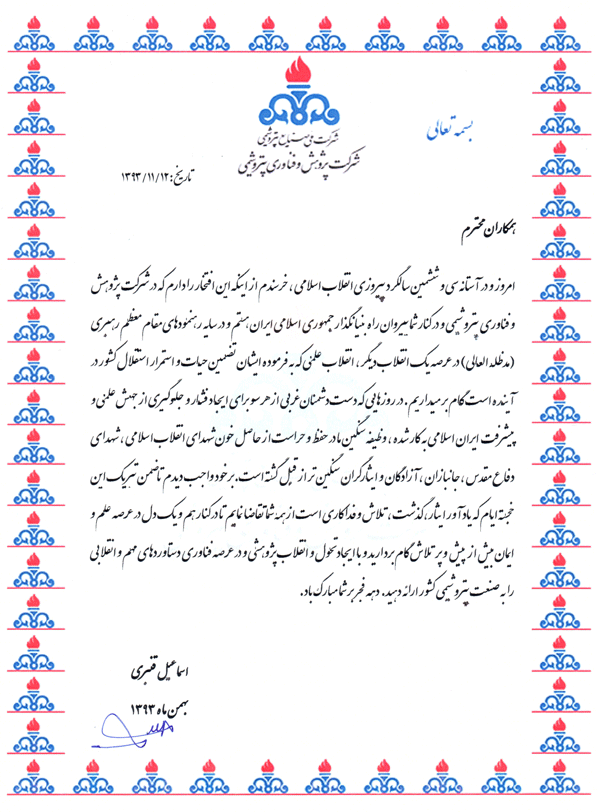 بسمه تعالی
شرکت ملی صنایع پتروشیمی
شرکت پژوهش و فناوری پتروشیمی
تاریخ: ۱۳۹۳/۱۱/۱۲
همکاران محترم
امروز و در آستانه سی و ششمین سالگرد پیروزی انقلاب اسلامی، خرسندم از اینکه این افتخار را دارم که در شرکت پژوهش
و فناوری پتروشیمی و در کنار شما پیروان راه بنیانگذار جمهوری اسلامی ایران هستم و در سایه رهنمودهای مقام معظم رهبری
(مدظله العالی) در عرصه یک انقلاب دیگر، انقلاب علمی که به فرموده ایشان تضمین حیات و استمرار استقلال کشور در
آینده است گام برمیداریم. در روزهایی که دست دشمنان غربی از هر سو برای ایجاد فشار و جلوگیری از جهش علمی و
پیشرفت ایران اسلامی به کار شده، وظیفه سنگین ما در حفظ و حراست از حاصل خون شهدای انقلاب اسلامی، شهدای
دفاع مقدس، جانبازان، آزادگان و ایثارگران سنگین تر از قبل گشته است. بر خود واجب دیدم تا ضمن تبریک این
خجسته ایام که یادآور ایثار، گذشت، تلاش و فداکاری است از همه شما تقاضا نمایم تا در کنار هم و یک دل در عرصه علم و
ایمان بیش از پیش و پر تلاش گام بردارید و با ایجاد تحول و انقلاب پژوهشی و در عرصه فناوری دستاوردهای مهم و انقلابی
را به صنعت پتروشیمی کشور ارائه دهید. دهه فجر بر شما مبارک باد.
اسماعیل قنبری
بهمن ماه ۱۳۹۳